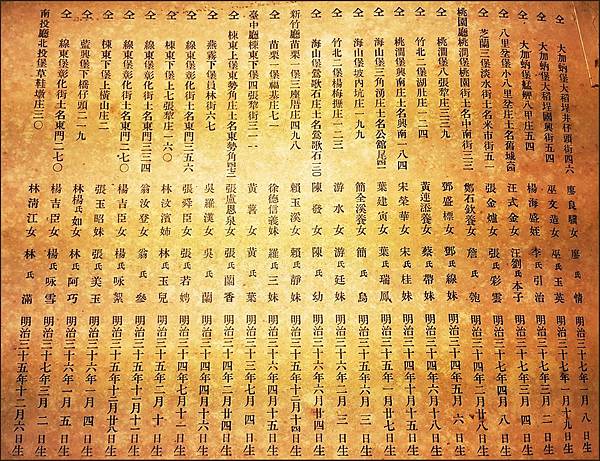 仝 大加蚋堡大稻埕井仔頭街四六 廖良驥女 廖氏情 明治三十七年二月八日生
仝 大加蚋堡大稻埕國興街五四 巫文造女 巫氏玉英 明治三十七年一月十九日生
仝 大加蚋堡艋舺八甲庄五四 楊海盛妊 李氏引治 明治三十三年三月二日生
仝 八里坌堡小八里坌庄土名舊城 汪式金女 汪劉氏本子 明治三十七年四月八日生
仝 芝蘭二堡淡水街土名米市街五一 張金爐女 張氏彩雲 明治三十年月日生
桃園廳桃澗堡桃園街土名中南街二三 鄭石欽養女 詹氏匏 明治三十四年二月廿八日生
仝 桃澗堡八張犂庄三九二 鄧盛標女 鄧氏線妹 明治三十五年月六日生
仝 竹北二堡湖庄一二四 黃連添養女 蔡氏帶妹 明治三十四年月日生
仝 桃澗堡興南庄土名興南一八四 宋榮華女 宋氏桂妹 明治三十四年月日生
仝 海山堡三角湧庄土名公舘尾四 葉建寅女 葉氏瑞鳳 明治三十五年二月廿七日生
仝 海山堡坡內坑庄一九九 簡全溪養女 簡氏烏 明治三十六年月三日生
仝 竹北二堡楊梅壢庄一二三 游水女 游氏廷妹 明治三十五年六月三日生
仝 海山堡鶯歌石庄土名鶯歌石二〇 陳發女 陳氏幼 明治三十六年六月廿四日生
新竹廳苗栗一堡三座厝庄四九八 賴玉溪女 賴氏靜妹 明治三十五年十二月十四日生
仝 苗栗一堡福基庄七一 徐德信義妹 羅氏三妹 明治三十四年四月十五日生
臺中廳楝東下堡四張犂街三二一 黃薯女 黃氏葉 明治三十三年七月四日生
仝 楝東上堡東勢角庄土名東勢角四三 張盧恩泉女 張氏蘭香 明治三十四年三月廿四日生
仝 燕霧下堡員林街六七 吳羅漢女 吳氏蘭 明治三十四年四月十六日生
仝 線東堡彰化街土名東門三五六 張舜臣女 張氏若娉 明治三十四年七月十二日生
仝 楝東下堡上七張犂庄一六〇 林汶濱姊 林氏玉兒 明治三十四年二月十一日生
仝 線東堡彰化街土名東門二三四 翁汝登女 翁氏參 明治三十五年三月二日生
仝 線東堡彰化街土名東門二七〇 楊吉臣女 楊氏咏絮 明治三十五年十二月廿八日生
仝 楝東下堡上橫山庄二 張玉昭妹 張氏美玉 明治三十六年一月四日生
仝 藍興堡下橋仔頭二一九 林楊氏如女 林氏阿巧 明治三十六年二月五日生
仝 線東堡彰化街土名東門二七〇 楊吉臣女 楊氏咏雪 明治三十七年三月二日生
南投廳北投堡草鞋墩庄三〇 林清江女 林氏滿 明治三十五年十二月六日生